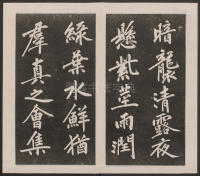 暗襲清露夜
懸紫莖雨潤
綠葉水鮮猶
群真之會集